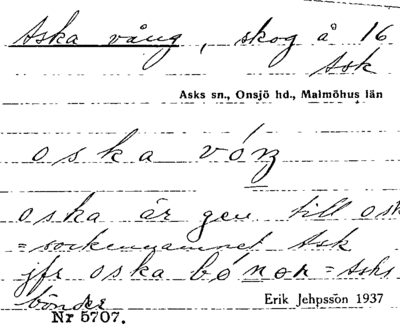 Aska vång, skog å 16
Ask
Asks sn., Onsjö hd., Malmöhus län
oska vóŋ
oska är gen till osk
=sockennamnet Ask
jfr oska bónor = Asks
bönder
Erik Jehpsson 1937
Nr 5707.